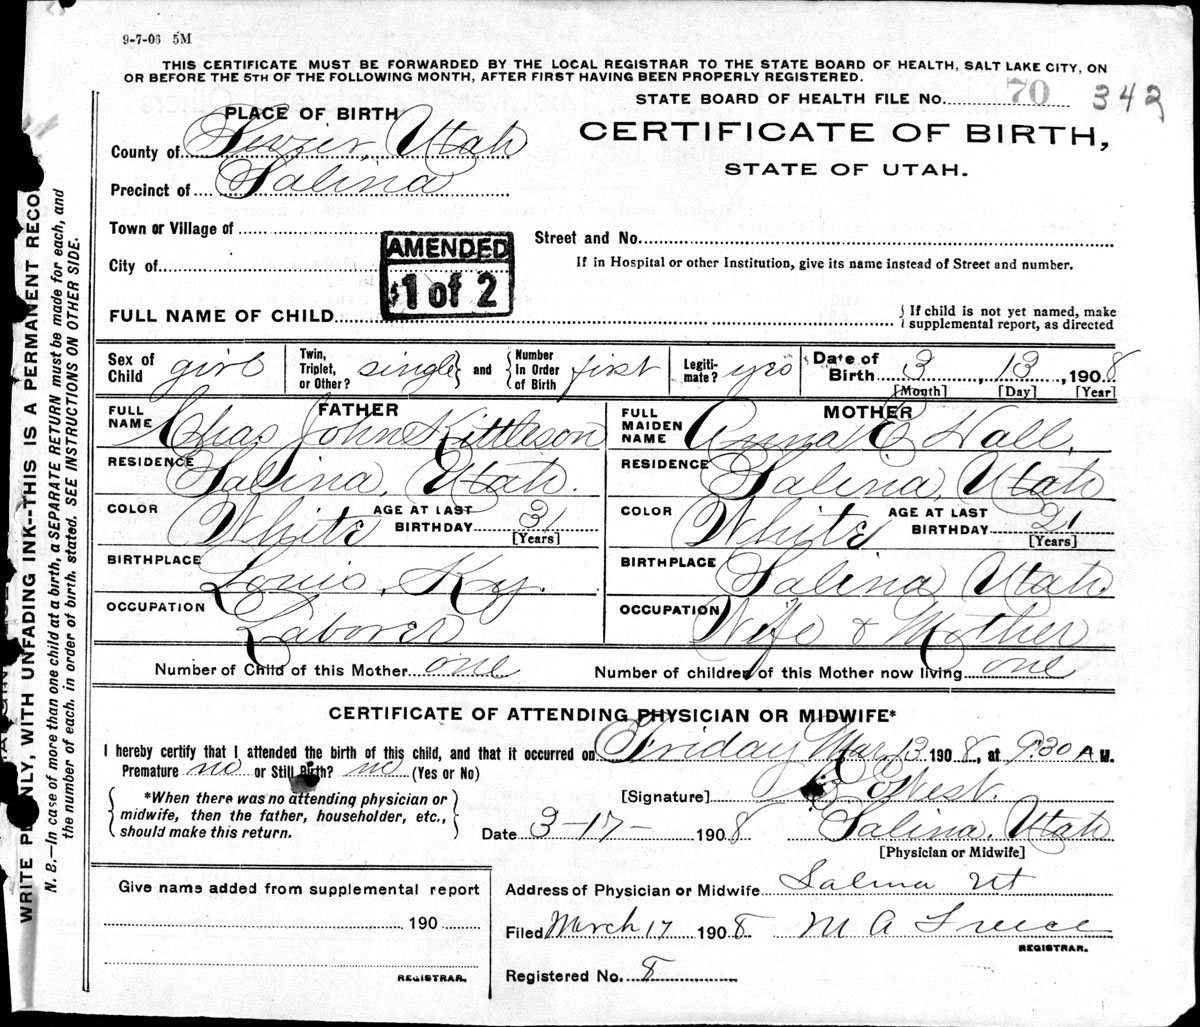 9-7-06 5M
THIS CERTIFICATE MUST BE FORWARDED BY THE LOCAL REGISTRAR TO THE STATE BOARD OF HEALTH, SALT LAKE CITY, ON
OR BEFORE THE 5TH OF THE FOLLOWING MONTH, AFTER FIRST HAVING BEEN PROPERLY REGISTERED.
STATE BOARD OF HEALTH FILE No. 70 342
PLACE OF BIRTH
CERTIFICATE OF BIRTH,
STATE OF UTAH.
County of Sevier, Utah
Precinct of Salina
Town or Village of
Street and No.
City of
If in Hospital or other Institution, give its name instead of Street and number.
AMENDED
1 of 2
FULL NAME OF CHILD
If child is not yet named, make
supplemental report, as directed
Sex of Child girl
Twin, Triplet, or Other? single and Number In Order of Birth first
Legitimate? yes
Date of Birth 3 13, 1908
[Month] [Day] [Year]
FATHER
FULL NAME Chas John Kittleson
RESIDENCE Salina, Utah.
COLOR White AGE AT LAST BIRTHDAY 31
[Years]
BIRTHPLACE Louis, Ky.
OCCUPATION Laborer
MOTHER
FULL MAIDEN NAME Anna E Hall,
RESIDENCE Salina, Utah
COLOR White AGE AT LAST BIRTHDAY 21
[Years]
BIRTHPLACE Salina Utah
OCCUPATION Wife & Mother
Number of Child of this Mother one
Number of children of this Mother now living one
CERTIFICATE OF ATTENDING PHYSICIAN OR MIDWIFE*
I hereby certify that I attended the birth of this child, and that it occurred on Friday Mar, 13 1908, at 9:30 A M.
Premature no or Still Birth? no (Yes or No)
*When there was no attending physician or
midwife, then the father, householder, etc.,
should make this return.
[Signature] West.
Date 3-17- 1908 Salina, Utah
[Physician or Midwife]
Give name added from supplemental report
190
REGISTRAR.
Address of Physician or Midwife Salina Ut
Filed March 17 1908 M A
REGISTRAR.
Registered No. 8
WRITE PLAINLY, WITH UNFADING INK--THIS IS A PERMANENT RECO
N. B.—In case of more than one child at a birth, a SEPARATE RETURN must be made for each, and
the number of each, in order of birth, stated. SEE INSTRUCTIONS ON OTHER SIDE.